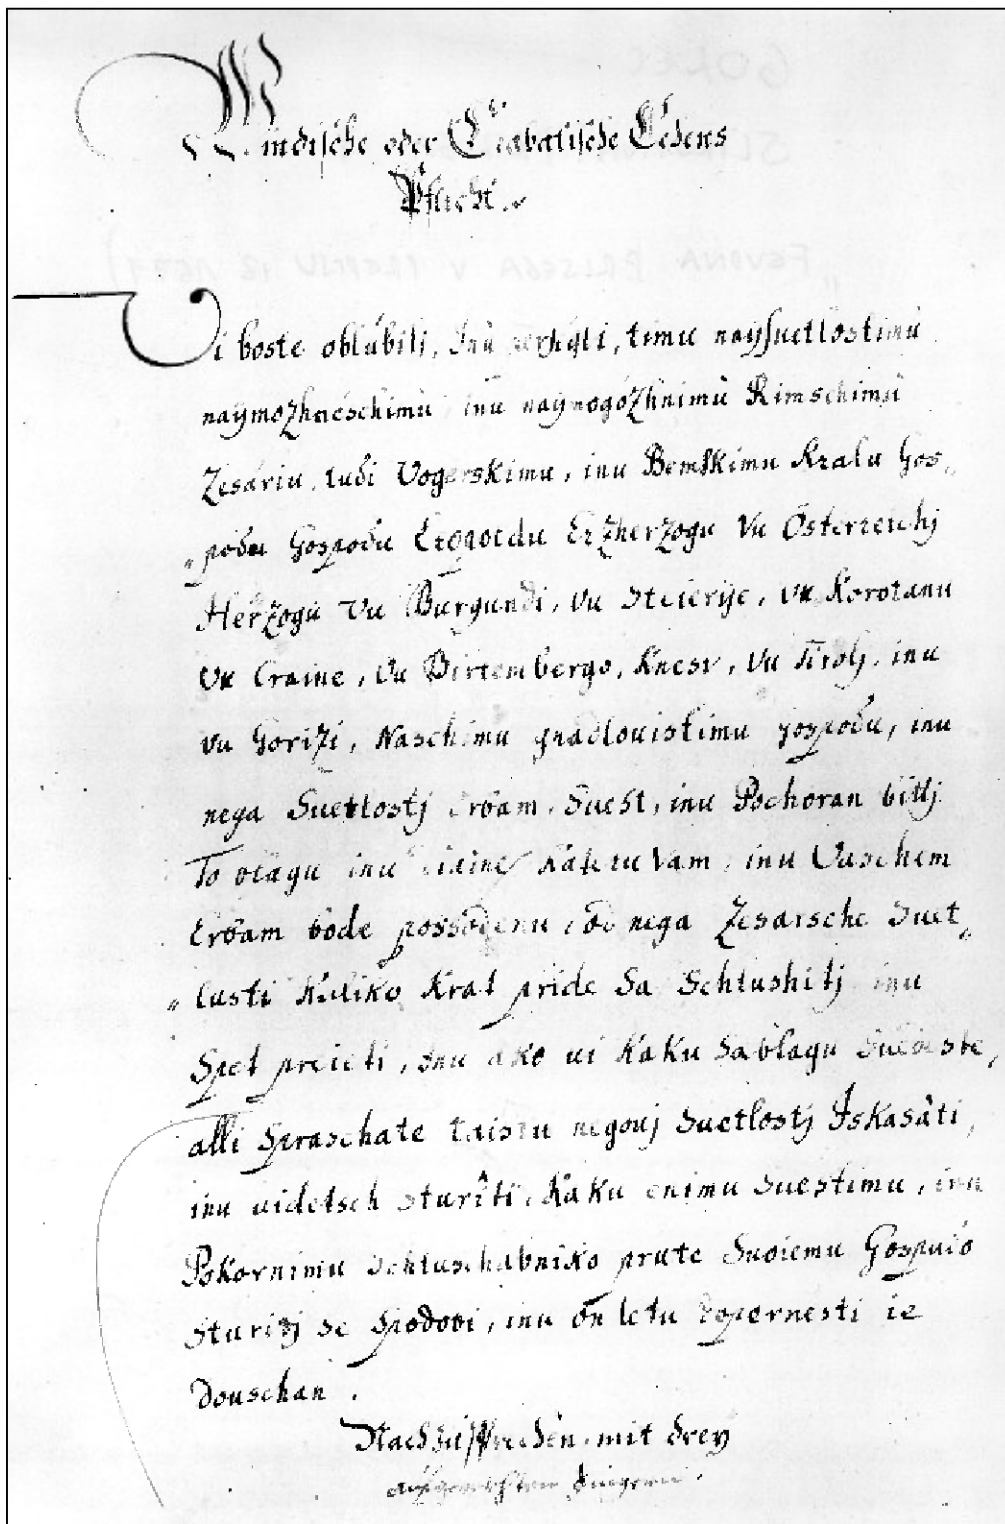 Windische oder Crabatische Lehens
Pflicht.
Vi boste oblubili, Inu perségli, timu naysuetlostimu
naymozhneschimu inu naynogozhnimu Rimschimu
Zesariu, tudi Vogerskimu, inu Bemskimu Kralu Gos„
„podu Gospodu Leopoldu Erzherzogu Vu Österreichj
Herzogu Vu Burgundi, vu Steierije, vu Korotanu
vu Craine, Vu Birtembergo, Knesv, Vu Tirolj, inu
vu Gorizi, Naschimu gnadlouistimu gospodu, inu
nega Suetlostj Erbam, Suest, inu Pochoran bitlj
To blagu inu Kateru Vam, inu Vaschem
Erbam bode possodenu, od nega Zesarsche Suet„
„lusti Kuliko Krat pride Sa Schlushitj inu
Spet preieti, Inu ako ui Kaku Sablagu Sueiste,
alli Spraschate taistu negouj Suetlostj Iskasàti,
inu uidetsch sturîti, Kaku enimu Suestimu, inu
Pokornimu Schluschabniko prute Suoiemu Gospudo
sturitj se Spodobi, inu on letu Popernesti ie
douschan.
Nachzusprechen mit drey
aufgereckhten Fingern.